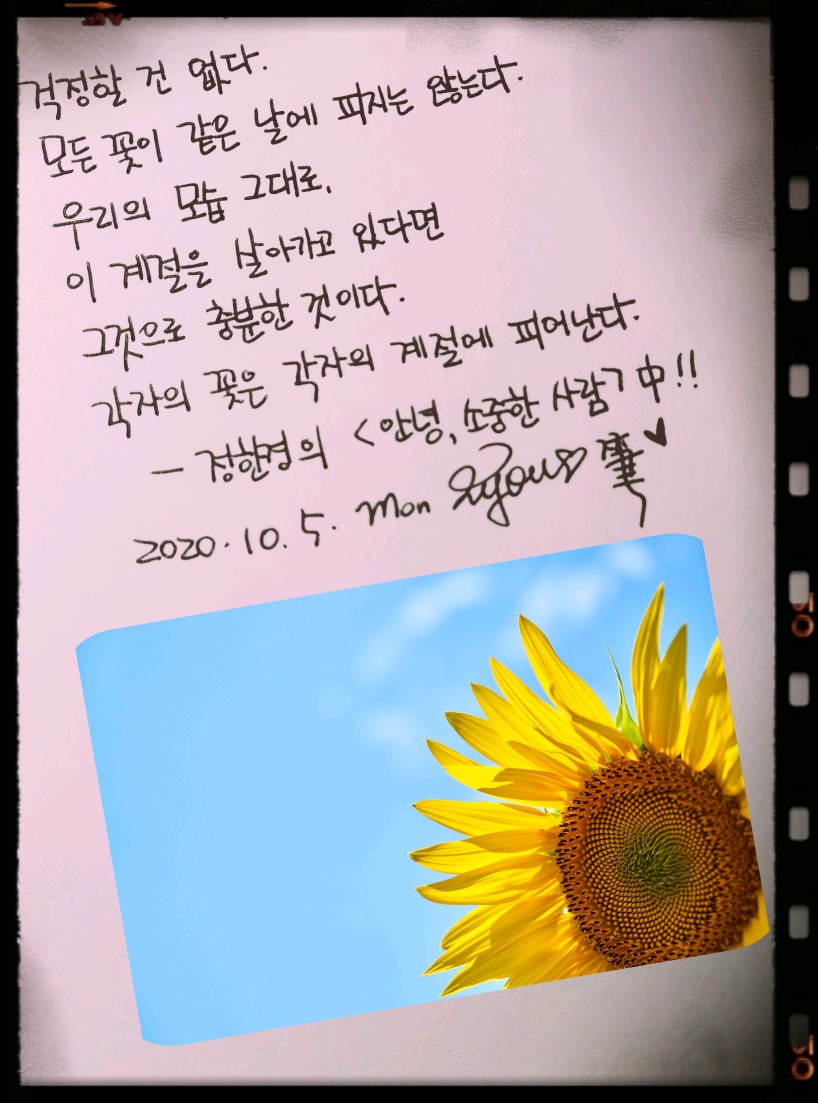 걱정할 건 없다.
모든 꽃이 같은 날에 피지는 않는다.
우리의 모습 그대로,
이 계절을 살아가고 있다면
그것으로 충분한 것이다.
각자의 꽃은 각자의 계절에 피어난다.
- 정한경의 <안녕, 소중한 사람> 中!!
2020.10.5. Mon